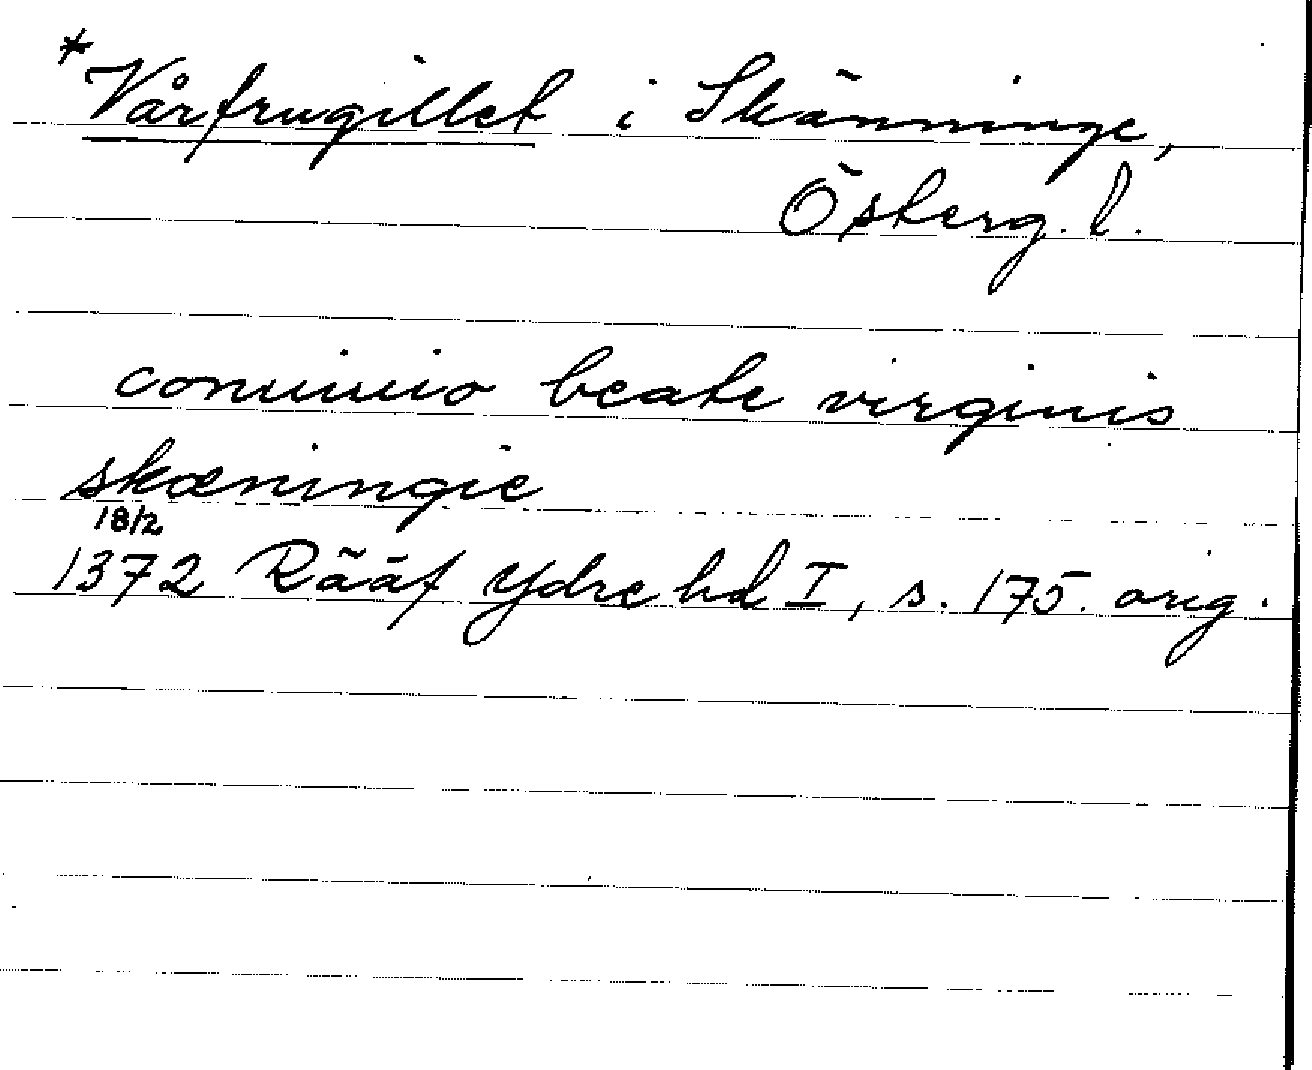 *Vårfrugillet i Skänninge,
Österg. l.
conuiuio beate virginis
skæningie
18/2
1372 Rääf Ydre hd I, s. 175. orig.